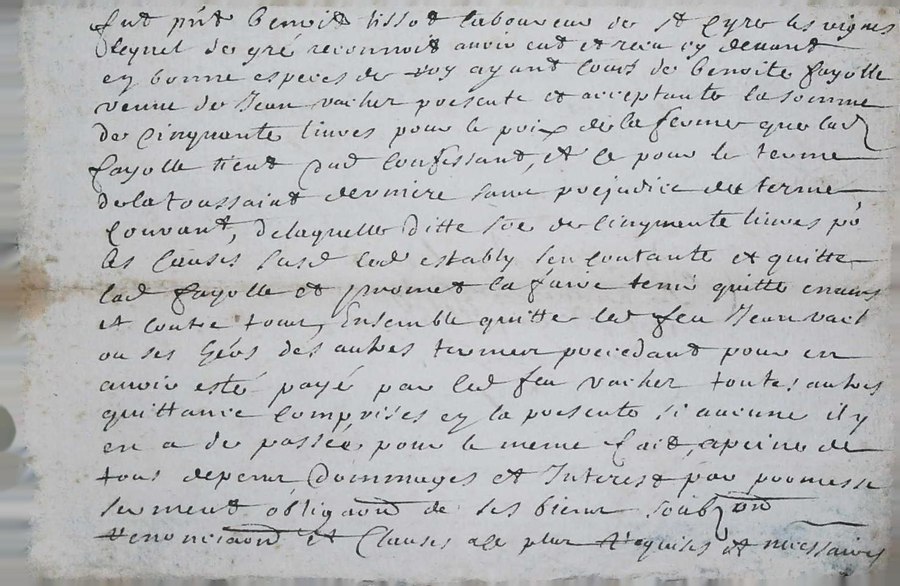 fut pnt benoit tissot laboureur de st Cyre les vignes
lequel de gré reconnoit avoir eut et receu cy devant
en bonne especes de roy ayant cours de benoite fayolle
veuve de Jean vacher presente et acceptante la somme
de cinquante livres pour le prix de la ferme que lad
fayolle tient dud confessant, et ce pour le terme
de la toussaint derniere sans prejudice du terme
Courant, de laquelle ditte soe de cinquante livres po
les causes susd led estably sen contante et quitte
lad fayolle et promet la faire tenir quitte envers
et contre tous, Ensemble quitte led feu Jean vach
ou ses hérs des autres termes precedant pour en
avoir esté payé par led feu vacher toutes autres
quittance comprises en la presente si aucune il y
en a de passée pour le meme fait, a peine de
tous depens Dommages et Interest par promesse
serment obligaon de ses biens soubzon
renonciaon et Clauses a ce plus requises et necessaires